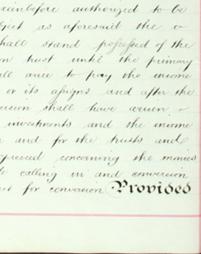 einbefore authorized to be
ject as aforesaid the
shall stand possessed of the
on trust until the primary
all once to pay the income
or its assigns and after the
shall have arisen
investments and the income
and for the trusts and
concerning the monies
calling in and conversion
for conversion Provided